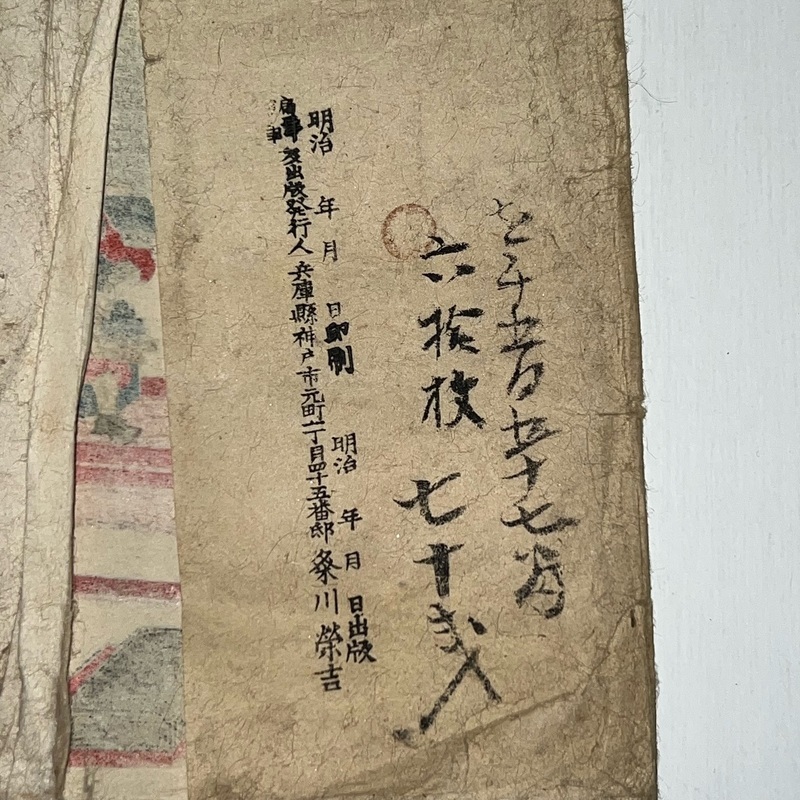 五百五十七番
六拾枚 七十
明治 年 月 日印刷 明治 年 月 日出版
出版発行人 兵庫縣神戸市元町六丁目四十五番邸 粂川榮吉